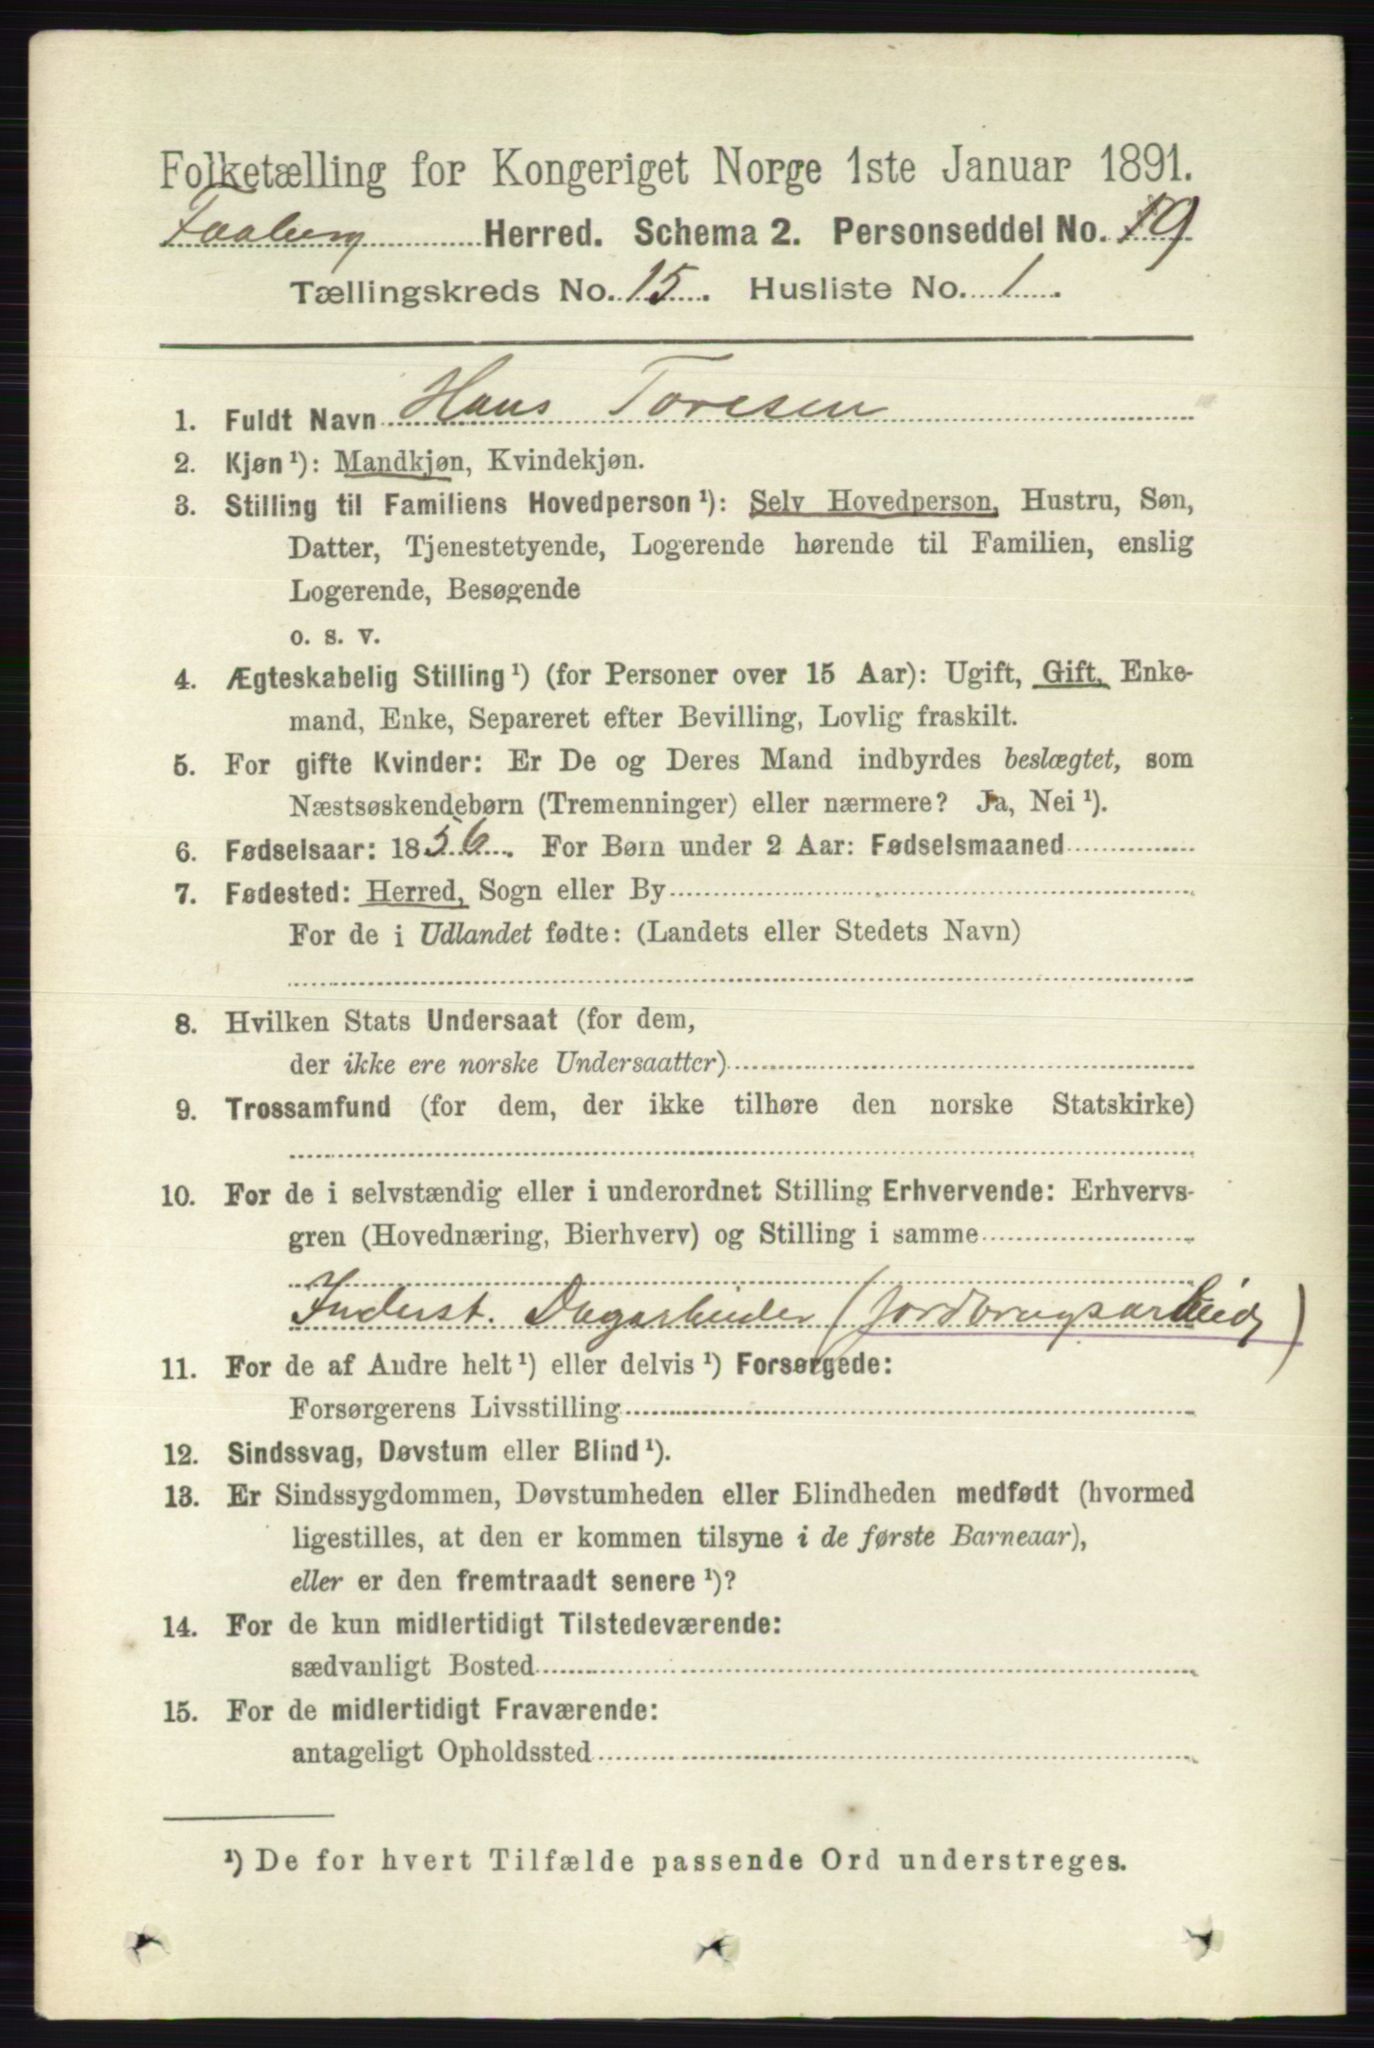 Folketælling for Kongeriget Norge 1ste Januar 1891.
Faaberg Herred. Schema 2. Personseddel No. 19
Tællingskreds No. 15. Husliste No. 1.
1. Fuldt Navn Hans Toresen
2. Kjøn ¹): Mandkjøn, Kvindekjøn.
3. Stilling til Familiens Hovedperson ¹): Selv Hovedperson, Hustru, Søn,
Datter, Tjenestetyende, Logerende hørende til Familien, enslig
Logerende, Besøgende
o. s. v.
4. Ægteskabelig Stilling ¹) (for Personer over 15 Aar): Ugift, Gift, Enke-
mand, Enke, Separeret efter Bevilling, Lovlig fraskilt.
5. For gifte Kvinder: Er De og Deres Mand indbyrdes beslægtet, som
Næstsøskendebørn (Tremenninger) eller nærmere? Ja, Nei ¹).
6. Fødselsaar: 1856. For Børn under 2 Aar: Fødselsmaaned
7. Fødested: Herred, Sogn eller By
For de i Udlandet fødte: (Landets eller Stedets Navn)
8. Hvilken Stats Undersaat (for dem,
der ikke ere norske Undersaatter)
9. Trossamfund (for dem, der ikke tilhøre den norske Statskirke)
10. For de i selvstændig eller i underordnet Stilling Erhvervende: Erhvervs-
gren (Hovednæring, Bierhverv) og Stilling i samme
Inderst. Dagarbeider (jordbrugsarbeid)
11. For de af Andre helt ¹) eller delvis ¹) Forsørgede:
Forsørgerens Livsstilling
12. Sindssvag, Døvstum eller Blind ¹).
13. Er Sindssygdommen, Døvstumheden eller Blindheden medfødt (hvormed
ligestilles, at den er kommen tilsyne i de første Barneaar),
eller er den fremtraadt senere ¹)?
14. For de kun midlertidigt Tilstedeværende:
sædvanligt Bosted
15. For de midlertidigt Fraværende:
antageligt Opholdssted
¹) De for hvert Tilfælde passende Ord understreges.